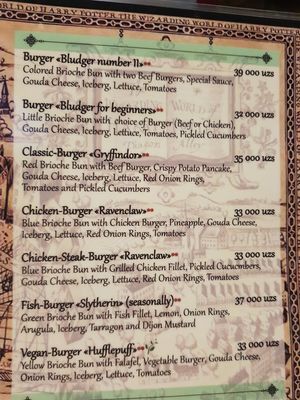 WORLD OF HARRY POTTER THE WIZARDING WORLD OF HARRY POTTER
Burger «Bludger number 11» 39 000 uzs
Colored Brioche Bun with two Beef Burgers, Special Sauce,
Gouda Cheese, Iceberg, Lettuce, Tomatoes
Burger «Bludger for beginners» 32 000 uzs
Little Brioche Bun with choice of Burger (Beef or Chicken),
Gouda Cheese, Iceberg, Lettuce, Tomatoes, Pickled Cucumbers
Classic-Burger «Gryffindor» 35 000 uzs
Red Brioche Bun with Beef Burger, Crispy Potato Pancake,
Gouda Cheese, Iceberg, Lettuce, Red Onion Rings,
Tomatoes and Pickled Cucumbers
Chicken-Burger «Ravenclaw» 33 000 uzs
Blue Brioche Bun with Chicken Burger, Pineapple, Gouda Cheese,
Iceberg, Lettuce, Red Onion Rings, Tomatoes
Chicken-Steak-Burger «Ravenclaw» 33 000 uzs
Blue Brioche Bun with Grilled Chicken Fillet, Pickled Cucumbers,
Gouda Cheese, Iceberg, Lettuce, Red Onion Rings, Tomatoes
Fish-Burger «Slytherin» (seasonally) 37 000 uzs
Green Brioche Bun with Fish Fillet, Lemon, Onion Rings,
Arugula, Iceberg, Tarragon and Dijon Mustard
Vegan-Burger «Hufflepuff» 33 000 uzs
Yellow Brioche Bun with Falafel, Vegetable Burger, Gouda Cheese,
Onion Rings, Iceberg, Lettuce, Tomatoes